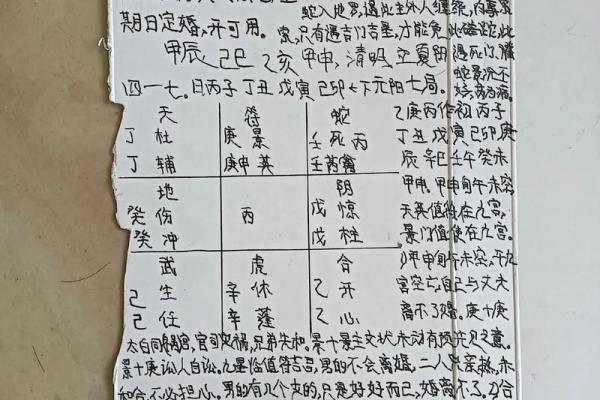 蛇入地罗,遇此主外人缠绕,内事索
期日定婚,开可用。 索,只有遇吉门吉星,才能免
甲辰 己巳 乙亥 甲申,清明 立夏阴
四一七。日丙子 丁丑 戊寅 己卯 下元阳七局。
天 符 蛇
丁 杜 庚 景 壬 死 丙
丁 辅 庚申 英 壬 芮禽
地 阴
癸 伤 丙 戊 惊
癸 冲 戊 柱
武 虎 合
己 生 辛 休 乙 开
己 任 辛 蓬 乙 心
乙庚丙作初 丙子
丁丑 戊寅 己卯 庚
辰 辛巳 壬午 癸未
甲申。甲申旬午未空,
天英值符在九宫。
景门值使在九宫。
甲申旬午未空,开九
宫空亡,自己与丈夫
离不了婚。庚十庚
太白同宫,官司灾祸,兄弟失和。景十景主文状未动有预先见之意。
景十庚讼人自讼。九星临值符吉宫,男的不会离婚,二人
和合不必担心。男的有几个支的,只是好好而已,婚离不了。